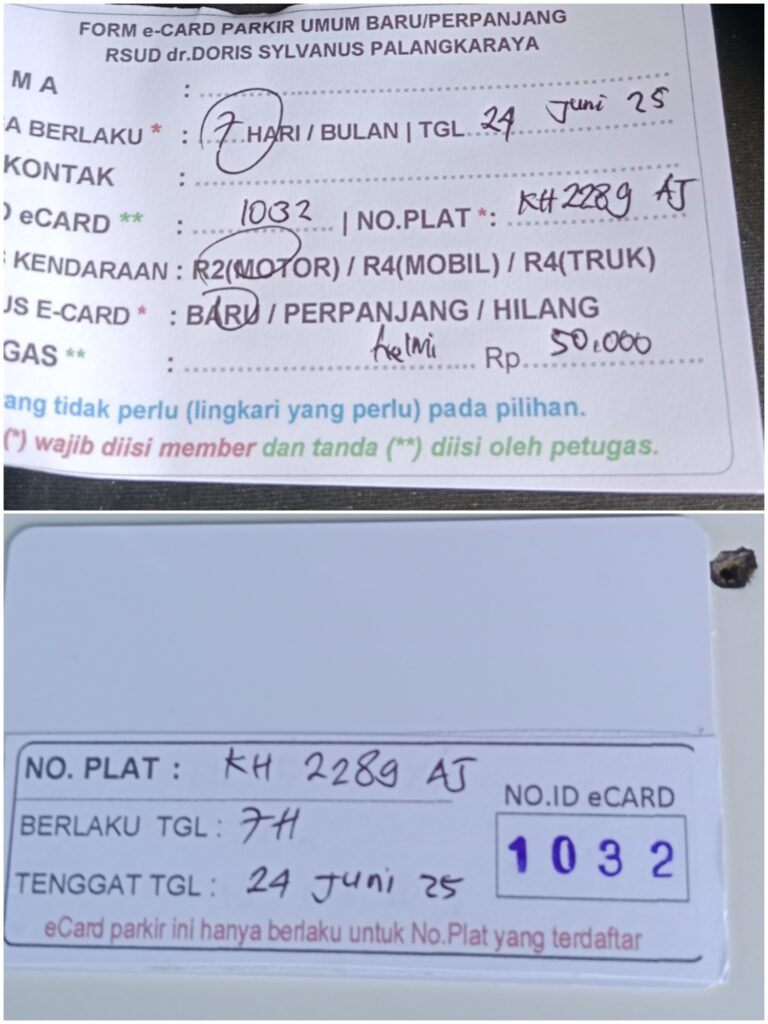 FORM e-CARD PARKIR UMUM BARU/PERPANJANG
RSUD dr.DORIS SYLVANUS PALANGKARAYA
MA :
A BERLAKU * : 7 HARI / BULAN | TGL 24 Juni 25
KONTAK :
eCARD ** : 1032 | NO.PLAT *: KH 2289 AJ
KENDARAAN : R2(MOTOR) / R4(MOBIL) / R4(TRUK)
US E-CARD * : BARU / PERPANJANG / HILANG
GAS ** : helmi Rp. 50.000
ang tidak perlu (lingkari yang perlu) pada pilihan.
(*) wajib diisi member dan tanda (**) diisi oleh petugas.
NO. PLAT : KH 2289 AJ
NO.ID eCARD
BERLAKU TGL : 7H
1032
TENGGAT TGL : 24 Juni 25
eCard parkir ini hanya berlaku untuk No.Plat yang terdaftar